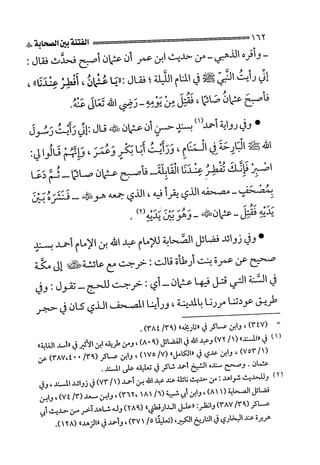 ١٦٢ الفتنة بين الصحابة
ـ وأقره الذهبي ـ من حديث ابن عمر أن عثمان أصبح فحدَّث فقال :
إنِّي رأيتُ النَّبيّ ﷺ في المنام الليلة ؛ فقال : «يَا عُثْمَانُ ، أَفْطِرْ عِنْدَنَا» ،
فأصبح عثمانُ صائمًا ، فَقُتِلَ مِنْ يَوْمِهِ ـ رَضِيَ الله تَعَالَى عَنْهُ.
● وفي رواية أحمد(١) بسندٍ حسنٍ أن عثمان قال : إِنِّي رَأَيْتُ رَسُولَ
الله ﷺ الْبَارِحَةَ فِي الْـمَنَامِ ، وَرَأَيْتُ أَبَا بَكْرٍ وَعُمَرَ ، وَإِنَّهُمْ قَالُوا لِي :
اصْبِرْ فَإِنَّكَ تُفْطِرُ عِنْدَنَا الْقَابِلَةَ ـ فأصبح عثمان صائمًا ـ ثُمَّ دَعَا
بِمُصْحَفٍ ـ مصحفه الذي يقرأ فيه ، الذي جمعه هو ـ فَنَشَرَهُ بَيْنَ
يَدَيْهِ فَقُتِلَ ـ عثمان ـ وَهُوَ بَيْنَ يَدَيْهِ(٢) .
● وفي زوائد فضائل الصَّحابة للإمام عبد الله بن الإمام أحمد بسندٍ
صحيح عن عمرة بنت أرطأة قالت : خرجت مع عائشة إلى مكَّة
في السَّنة التي قتل فيها عثمان ـ أي : خرجت للحج ـ تقول : وفي
طريق عودتنا مررنا بالمدينة ، ورأينا المصحف الذي كان في حجر
= (٣٤٧) ، وابن عساكر في «تاريخه» (٣٩/ ٣٨٤).
(١) في «المسند» (١/ ٧٢) وعبد الله في الفضائل (٨٠٩) ، ومن طريقه ابن الأثير في «أسد الغابة»
(١/ ٧٥٣) ، وابن عدي في «الكامل» (٧/ ١٧٥) ، وابن عساكر (٣٩/ ٣٨٧،٤٠٠) عن
عثمان . وصحح سنده الشيخ أحمد شاكر في تعليقه على المسند .
(٢) وللحديث شواهد : من حديث نائلة عند عبد الله بن أحمد (١/ ٧٣) في زوائد المسند ، وفي
فضائل الصحابة (٨١١) ، وابن أبي شيبة (٦/ ١٨١، ٣٦٢) ، وابن سعد (٣/ ٧٤) ، وابن
عساكر (٣٩/ ٣٨٧) وانظر : «علل الدارقطني» (٢٨٩) وله شاهد آخر من حديث أبي
هريرة عند البخاري في التاريخ الكبير، (تعليقًا ٥/ ٣٧١) ، وأحمد في «الزهد» (١٢٨).